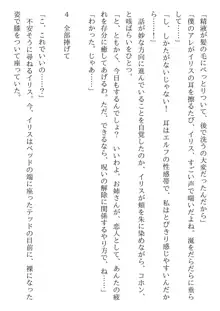 精液が髪の毛にべっとりついて、後で洗うの大変だったんだから」
「僕のアレがイリスの耳を擦るたび、イリス、すごい声で喘いだよね。涎をだらだらに垂ら
して……」
「し、しかたがないじゃない！　耳はエルフの性感帯で、イリスはとびきり感じやすいんだ
から！」
話が妙な方向に進んでいることを自覚したのか、イリスが頬を朱に染めながら、コホン、
と咳ばらいをひとつした。
「わかった、じゃあ……いいわよ、お姉さんが、恋人として、あんたの疲
れを存分に癒してあげるわ。できるなら、呪いの解除に関係するやり方で、ね……」
４　全部捧げて
「こ、これでいいの……？」
不安そうに尋ねるイリス。今、イリスはベッドの端に座ったテッドの目前に、裸になった
姿で膝をついていた。